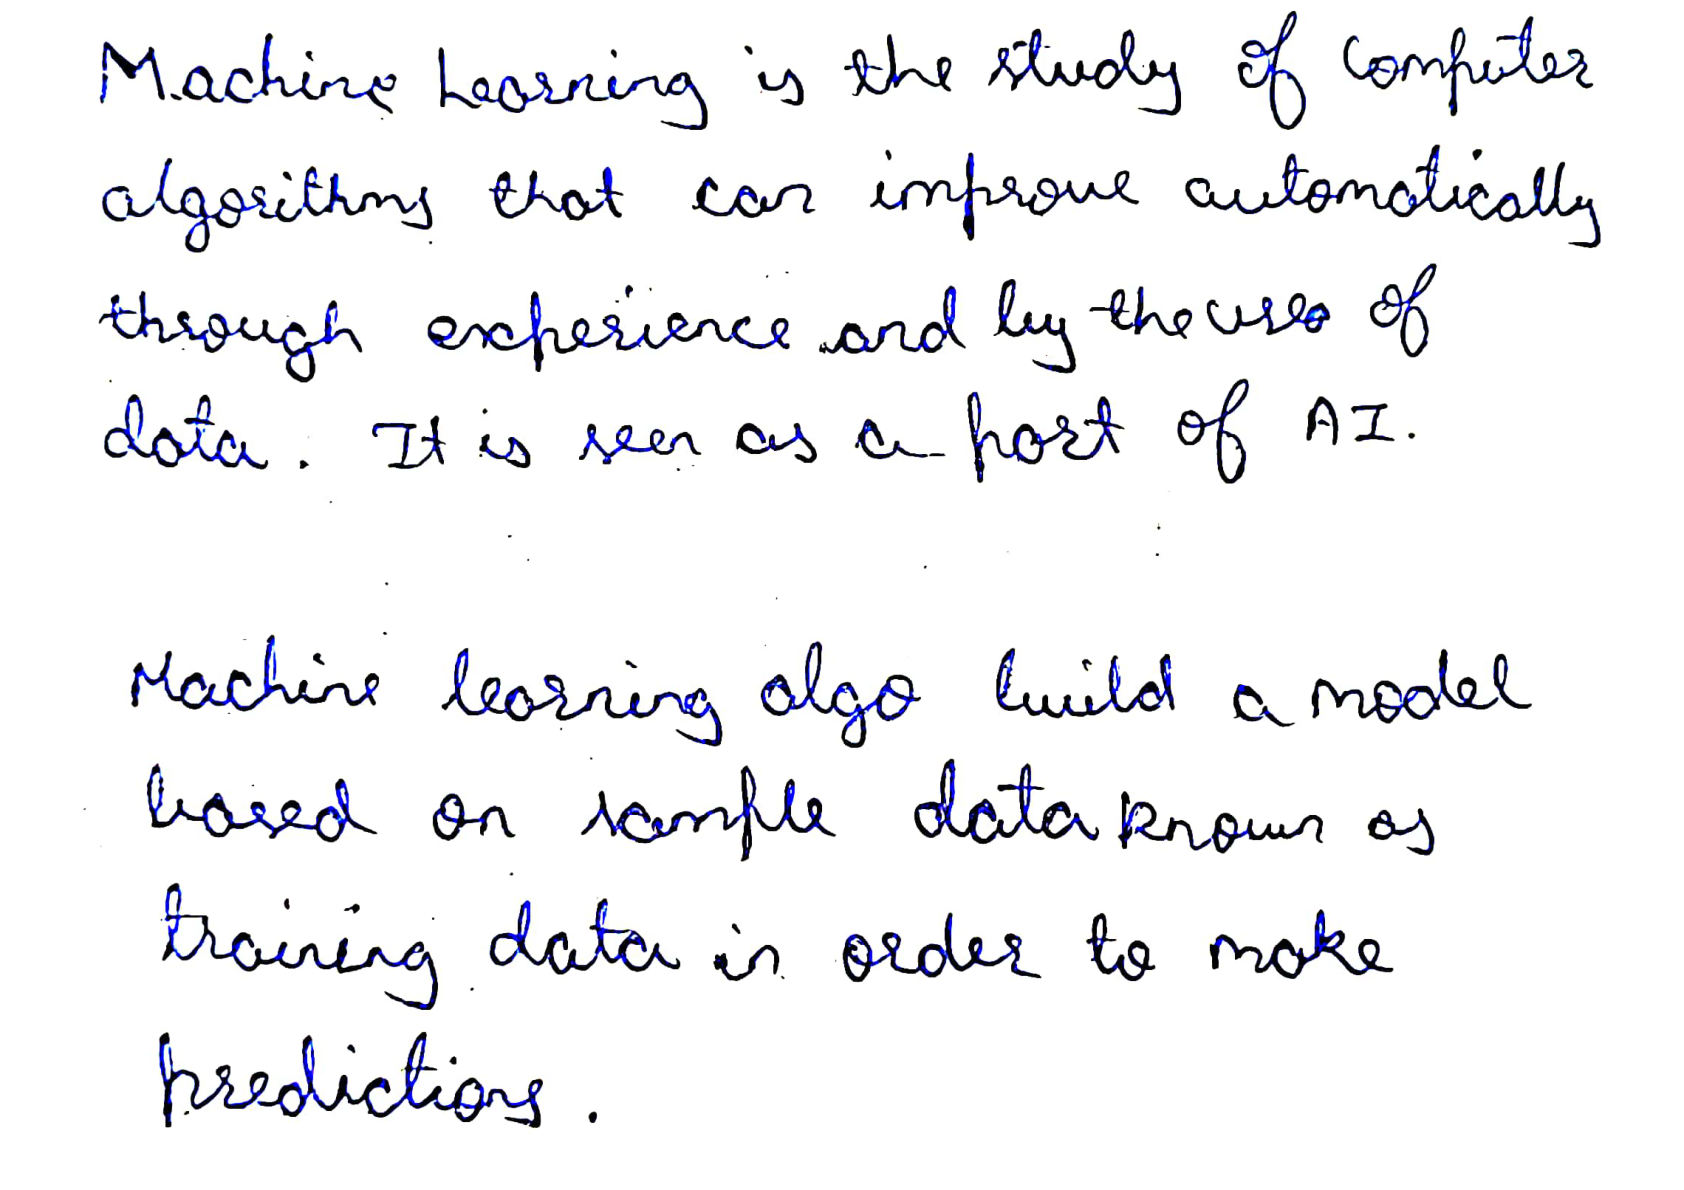 Machine Learning is the study of Computer
algorithms that can improve automatically
through experience and by the use of
data. It is seen as a part of AI.
Machine learning algo build a model
based on sample data known as
training data in order to make
predictions.